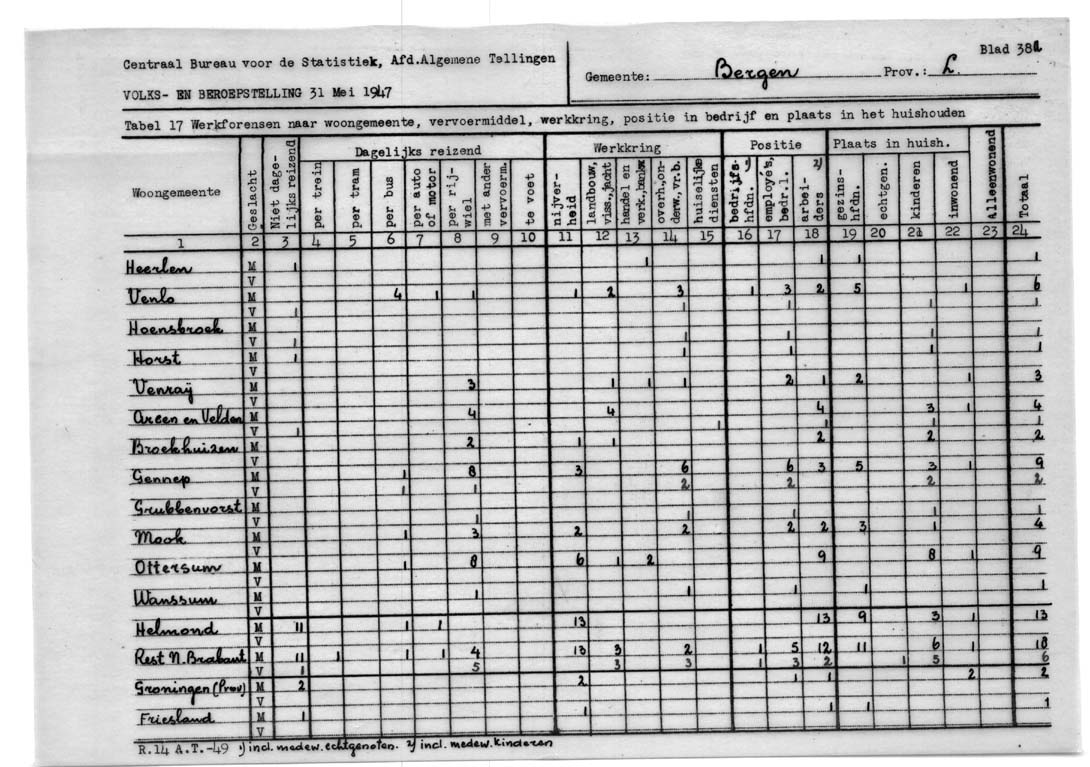 Blad 38d
Centraal Bureau voor de Statistiek, Afd.Algemene Tellingen
Gemeente: Bergen Prov.: L.
VOLKS- EN BEROEPSTELLING 31 Mei 1947
Tabel 17 Werkforensen naar woongemeente, vervoermiddel, werkkring, positie in bedrijf en plaats in het huishouden
Woongemeente | Geslacht | Niet dage-lijks reizend | Dagelijks reizend | Werkkring | Positie | Plaats in huish. | Alleenwonend | Totaal
per trein | per tram | per bus | per auto of motor | per rij-wiel | met ander vervoerm. | te voet | nijver-heid | landbouw, viss.,jacht | handel en verk.,bankw. | overh.,on-derw.,vr.b. | huiselijke diensten | bedrijfs-hfdn. 1) | employé's, bedr.l. | arbei-ders 2) | gezins-hfdn. | echtgen. | kinderen | inwonend
1 2 3 4 5 6 7 8 9 10 11 12 13 14 15 16 17 18 19 20 21 22 23 24
Heerlen M 1 1 1 1 1
V
Venlo M 4 1 1 1 2 3 1 3 2 5 1 6
V 1 1 1 1 1
Hoensbroek M
V 1 1 1 1 1
Horst M 1 1 1 1 1
V
Venraÿ M 3 1 1 1 2 1 2 1 3
V
Arcen en Velden M 4 4 4 3 1 4
V 1 1 1 1 1
Broekhuizen M 2 1 1 2 2 2
V
Gennep M 1 8 3 6 6 3 5 3 1 9
V 1 1 2 2 2 2
Grubbenvorst M
V 1 1 1 1 1
Mook M 1 3 2 2 2 2 3 1 4
V
Ottersum M 1 8 6 1 2 9 8 1 9
V
Wanssum M 1 1 1 1 1
V
Helmond M 11 1 1 13 13 9 3 1 13
V
Rest N.Brabant M 11 1 1 1 4 13 3 2 1 5 12 11 6 1 18
V 1 5 3 3 1 3 2 1 5 6
Groningen (Prov) M 2 2 1 1 2 2
V
Friesland M 1 1 1 1 1
V
R.14 A.T.-49 1) incl. medew. echtgenoten. 2) incl. medew. kinderen